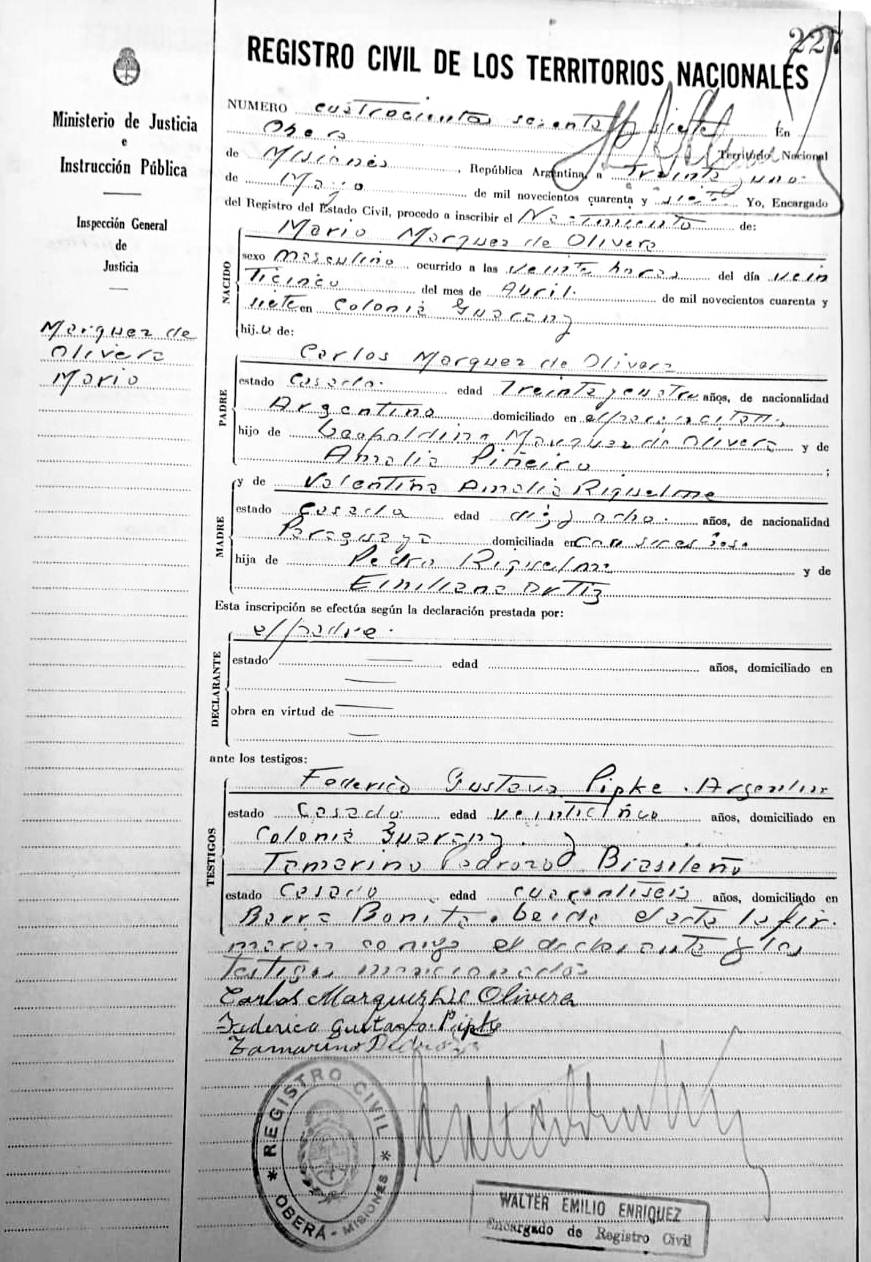 227
REGISTRO CIVIL DE LOS TERRITORIOS NACIONALES
Ministerio de Justicia
e
Instrucción Pública
Inspección General
de
Justicia
Marquez de
Olivera
Mario
NUMERO cuatrocientos sesenta y siete En
Obera Territorio Nacional
de Misiones, República Argentina, a Treinta y uno
de Mayo de mil novecientos cuarenta y siete Yo, Encargado
del Registro del Estado Civil, procedo a inscribir el Nacimiento de:
NACIDO
Mario Marquez de Olivera
sexo masculino ocurrido a las veinte horas del día vein
Ticinco del mes de Abril de mil novecientos cuarenta y
siete en Colonia Guarany
hijo de:
PADRE
Carlos Marquez de Olivera
estado Casado edad Treinta y cuatro años, de nacionalidad
Argentino domiciliado en el
hijo de Leopoldino Marquez de Olivera y de
Amalia Piñeiro;
MADRE
y de Valentina Amalia Riquelme
estado Casada edad diez y ocho años, de nacionalidad
Paraguaya domiciliada en con su esposo
hija de Pedro Riquelme y de
Emiliana Ortiz
Esta inscripción se efectúa según la declaración prestada por:
DECLARANTE
el padre.
estado edad años, domiciliado en
obra en virtud de
ante los testigos:
TESTIGOS
Federico Gustavo Pipke. Argentino
estado Casado edad veinticinco años, domiciliado en
Colonia Guarany y
Tamarino Pedrozo Brasileño
estado Casado edad cuarentiseis años, domiciliado en
Barra Bonita. Leida el acta la fir
maron conmigo el declarante y los
testigos mencionados
Carlos Marquez de Olivera
Federico Gustavo Pipke
Tamarino Pedrozo
REGISTRO CIVIL
OBERÁ - MISIONES
WALTER EMILIO ENRIQUEZ
Encargado de Registro Civil